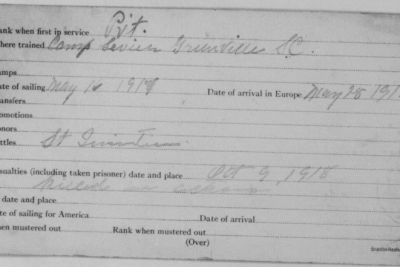 ank when first in service Pvt.
here trained Camp Sevier Greenville S.C.
amps
ate of sailing May 16 1918 Date of arrival in Europe May 28 191
ransfers
omotions
onors
ttles St Quintin
sualties (including taken prisoner) date and place Oct 9, 1918
killed in action
date and place
te of sailing for America Date of arrival
hen mustered out Rank when mustered out
(Over)